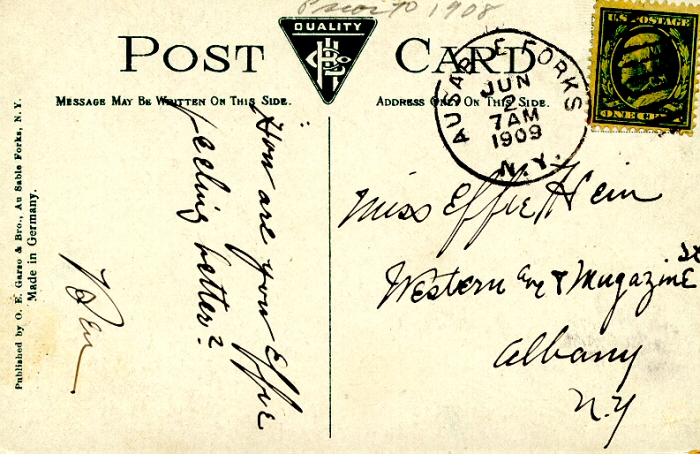 Prior to 1908
POST CARD
QUALITY
MESSAGE MAY BE WRITTEN ON THIS SIDE.
ADDRESS ONLY ON THIS SIDE.
AUSABLE FORKS
JUN
2
7AM
1909
N.Y.
U.S. POSTAGE
ONE CENT
"How are you Effie
feeling better?
Miss Effie Hein
Western Ave & Magazine St
Albany
N.Y
Published by O. E. Garso & Bro., Au Sable Forks, N. Y.
Made in Germany.